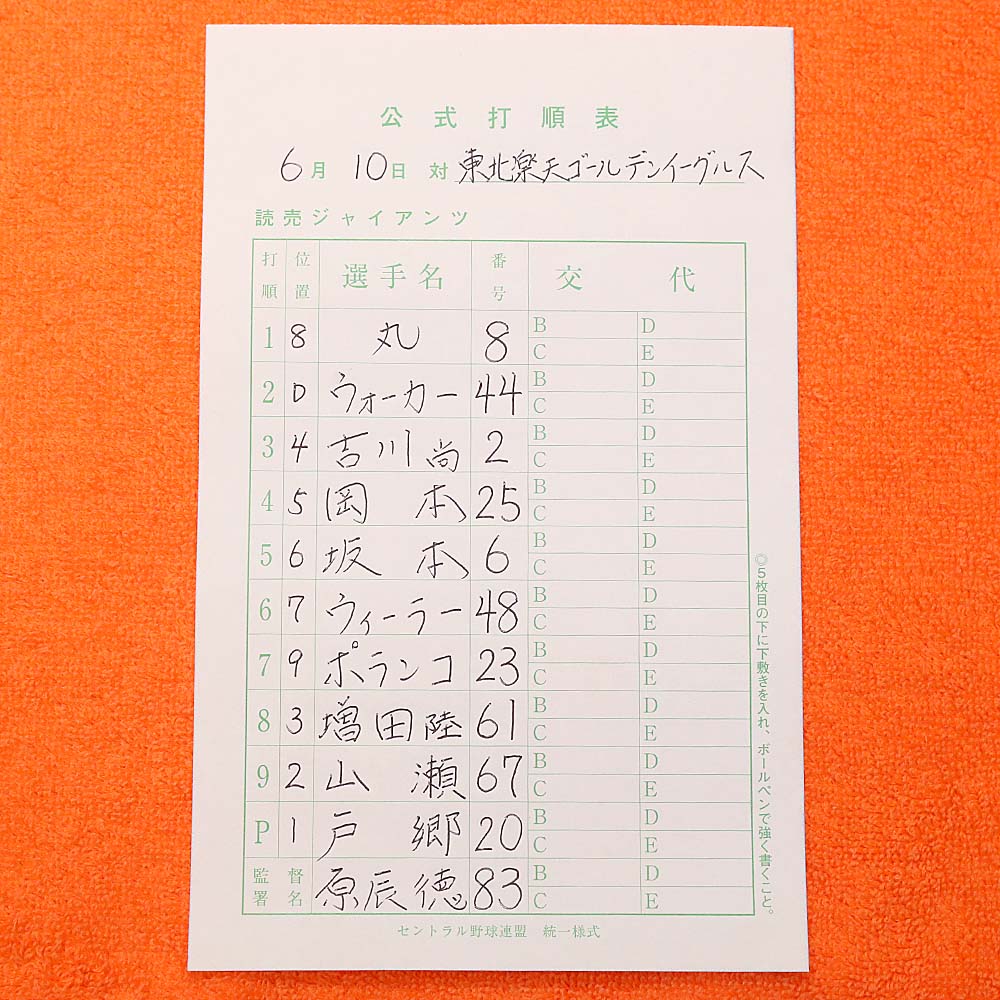 公式打順表
6月 10日 対 東北楽天ゴールデンイーグルス
読売ジャイアンツ
打順 位置 選手名 番号 交代
1 8 丸 8 B D C E
2 D ウォーカー 44 B D C E
3 4 吉川尚 2 B D C E
4 5 岡本 25 B D C E
5 6 坂本 6 B D C E
6 7 ウィーラー 48 B D C E
7 9 ポランコ 23 B D C E
8 3 増田陸 61 B D C E
9 2 山瀬 67 B D C E
P 1 戸郷 20 B D C E
監督署名 原辰徳 83 B D C E
セントラル野球連盟 統一様式
◎5枚目の下に下敷きを入れ、ボールペンで強く書くこと。